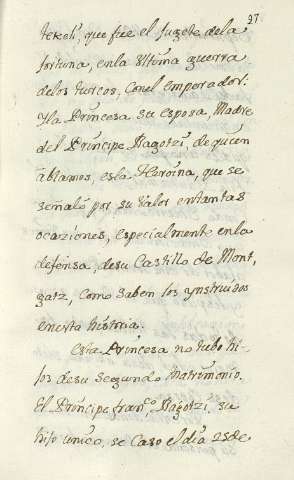 97
tekeli, que fue el jugete dela
fortuna, enla ultima guerra
delos turcos, conel emperador.
Yla Princesa su esposa, Madre
del Principe Ragotzi, de quien
ablamos, esla Heroina, que se
señaló por su valor entantas
ocaziones, especialment enla
defensa, desu Castillo de Mont,
gatz, como saben los ynstruidos
enesta historia.
Esta Princesa no tubo hi-
jos desu segundo Matrimonio.
El Principe fran.co Ragotzi, su
hijo unico, se caso el dia 25 de